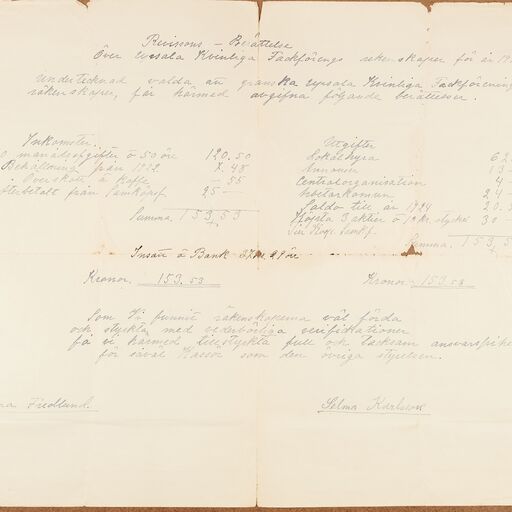 Revisons - Berättelse
Över Upsala Kvinliga Fackförengs räkenskaper för år 19
Undertecknad valda att granska Upsala Kvinliga Fackförening
räkenskaper, får härmed avgifva följande berättelser.
Inkomster.
månadsafgifter à 50 öre 120.50
Behållning från 1922 7.48
Överskott å kaffe - 55
återbetalt från Samkjöpf 25 -
Summa 153,53
Utgifter
Lokalhyra 62
Annonser 13 -
Centralorganisation 4
Arbetarkomun 24 -
Saldo till år 1924 20.
Kjöpta 3 aktier à 10 kr. stycke 30 -
Summa. 153,5
Insatt å Bank 27 kr. 29 öre
Kronor. 153.53
Kronor. 153.53
Som Vi funnit räkenskaperna väl förda
och styrkta med vederbörliga verifikationer
få vi härmed tillstyrkta full och tacksam ansvarsfrihe
för såväl Kassör som den övriga styrelsen.
Fredlund.
Selma Karlsson